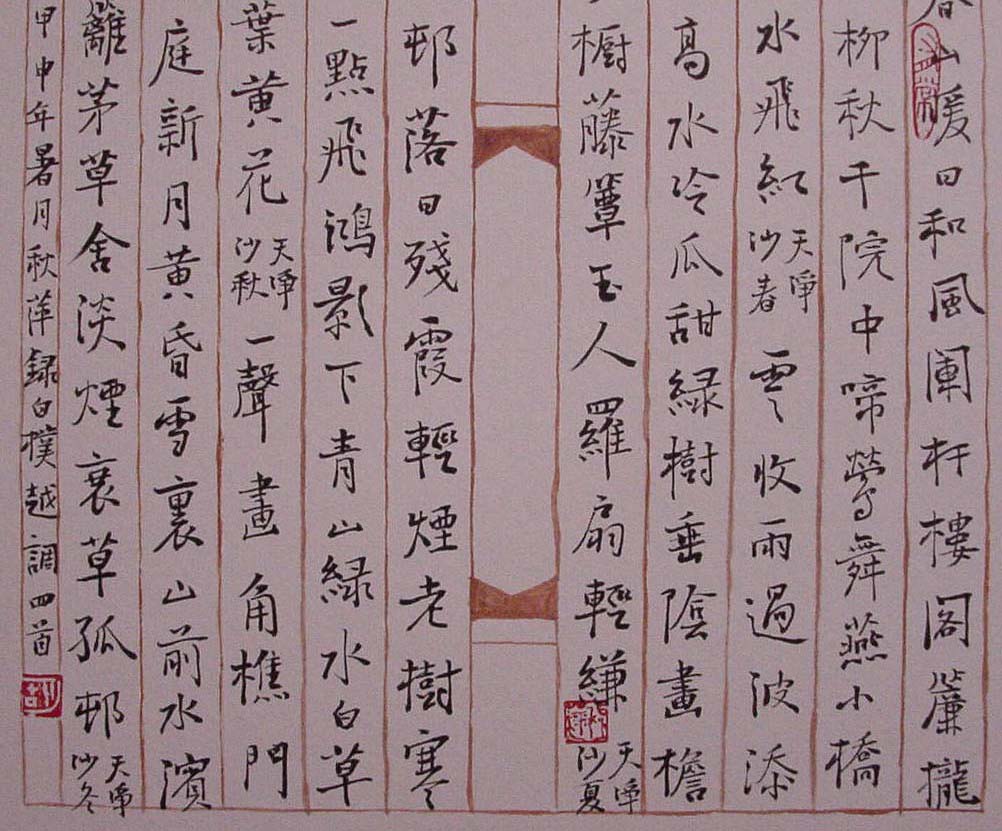 春山暖日和風闌杆樓閣簾櫳
柳秋千院中啼鶯舞燕小橋
水飛紅天淨沙春雲收雨過波添
高水冷瓜甜綠樹垂陰畫檐
櫥藤簟玉人羅扇輕縑天淨沙夏
邨落日殘霞輕煙老樹寒
一點飛鴻影下青山綠水白草
葉黃花天淨沙秋一聲畫角樵門
庭新月黃昏雪裏山前水濱
籬茅草舍淡煙衰草孤邨天淨沙冬
甲申年暑月秋萍録白樸越調四首